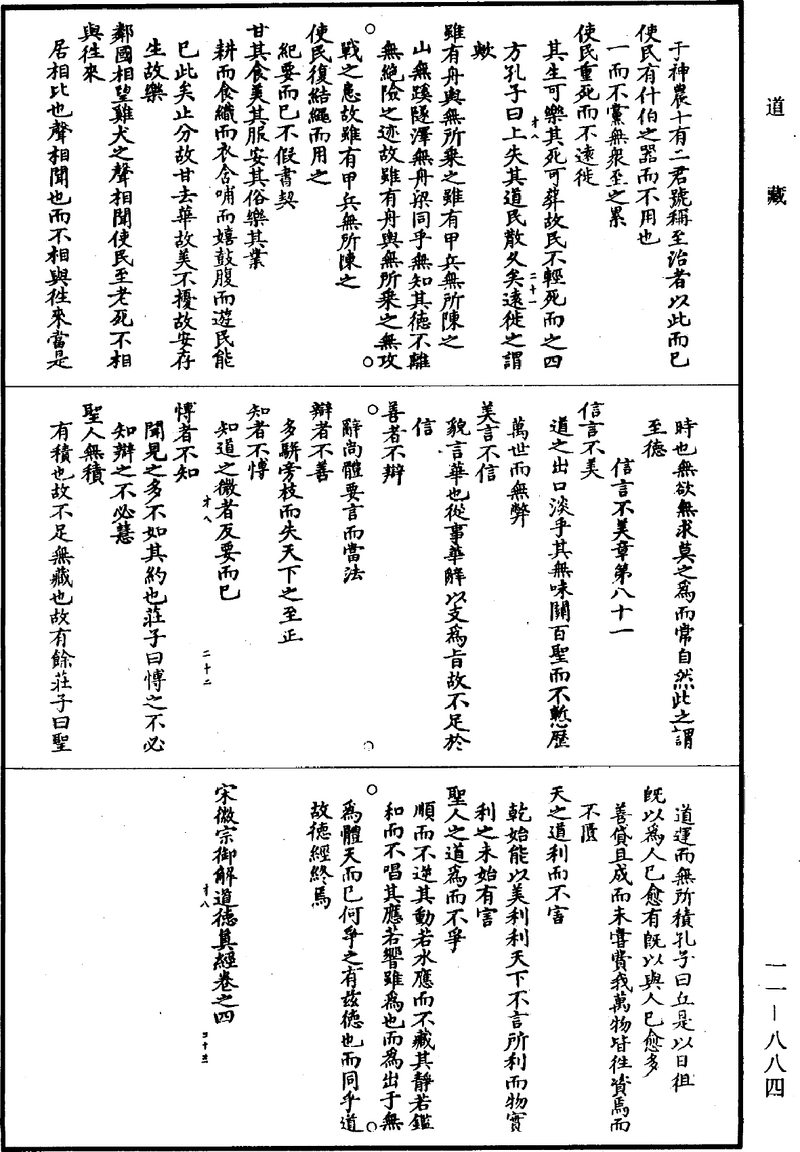 道藏
于神農十有二君號稱至治者以此而已
使民有什伯之器而不用也
一而不黨無衆至之累
使民重死而不遠徙
其生可樂其死可葬故民不輕死而之四
方孔子曰上失其道民散久矣遠徙之謂
歟
雖有舟輿無所乘之雖有甲兵無所陳之
山無蹊隧澤無舟梁同乎無知其德不離
無絶險之迹故雖有舟輿無所乘之無攻
戰之患故雖有甲兵無所陳之
使民復結繩而用之
紀要而已不假書契
甘其食美其服安其俗樂其業
耕而食織而衣含哺而嬉鼓腹而遊民能
已此矣止分故甘去華故美不擾故安存
生故樂
鄰國相望雞犬之聲相聞使民至老死不相
與徃來
居相比也聲相聞也而不相與徃來當是
才八
二十一
時也無欲無求莫之爲而常自然此之謂
至德
信言不美章第八十一
信言不美
道之出口淡乎其無味關百聖而不慙歷
萬世而無弊
美言不信
貌言華也從事華辭以支爲旨故不足於
信
善者不辯
辭尚體要言而當法
辯者不善
多駢旁枝而失天下之至正
知者不愽
知道之微者反要而已
愽者不知
聞見之多不如其約也莊子曰愽之不必
知辯之不必慧
聖人無積
有積也故不足無藏也故有餘莊子曰聖
才八
二十二
道運而無所積孔子曰丘是以日徂
旣以爲人已愈有旣以與人已愈多
善貸且成而未嘗費我萬物皆徃資焉而
不匱
天之道利而不害
乾始能以美利利天下不言所利而物實
利之未始有害
聖人之道爲而不爭
順而不逆其動若水應而不藏其靜若鑑
和而不唱其應若響雖爲也而爲出于無
爲體天而已何爭之有茲德也而同乎道
故德經終焉
宋徽宗御解道德眞經卷之四
才八
二十三
一一—八八四